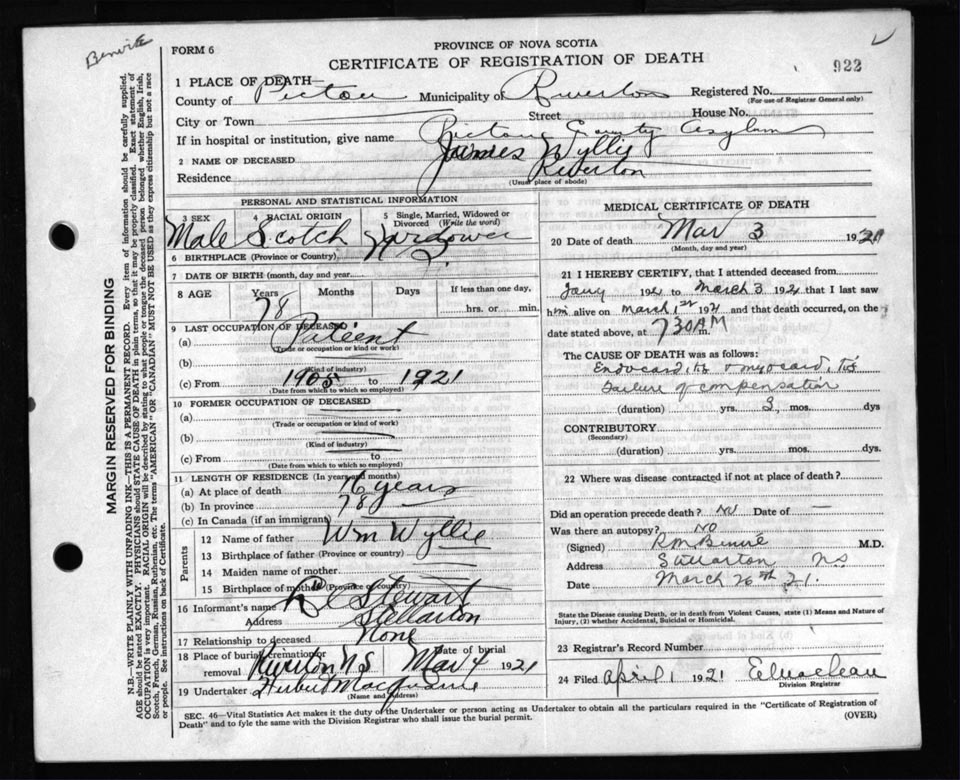 Benvie
FORM 6
PROVINCE OF NOVA SCOTIA
CERTIFICATE OF REGISTRATION OF DEATH
922
1 PLACE OF DEATH—
County of Pictou Municipality of Riverton Registered No.
(For use of Registrar General only)
City or Town Street House No.
If in hospital or institution, give name Pictou County Asylum
2 NAME OF DECEASED James Wyllie
Residence Riverton
(Usual place of abode)
PERSONAL AND STATISTICAL INFORMATION
3 SEX Male
4 RACIAL ORIGIN Scotch
5 Single, Married, Widowed or Divorced (Write the word) Widower
6 BIRTHPLACE (Province or Country) N.S.
7 DATE OF BIRTH (month, day and year)
8 AGE Years Months Days If less than one day,
78 hrs. or min.
9 LAST OCCUPATION OF DECEASED
(a) Patient
(Trade or occupation or kind of work)
(b)
(Kind of industry)
(c) From 1905 to 1921
(Date from which to which so employed)
10 FORMER OCCUPATION OF DECEASED
(a)
(Trade or occupation or kind of work)
(b)
(Kind of industry)
(c) From to
(Date from which to which so employed)
11 LENGTH OF RESIDENCE (In years and months)
(a) At place of death 16 years
(b) In province 78
(c) In Canada (if an immigrant)
Parents
12 Name of father Wm Wyllie
13 Birthplace of father (Province or country)
14 Maiden name of mother
15 Birthplace of mother (Province or country)
16 Informant's name Stewart
Address Stellarton
17 Relationship to deceased None
18 Place of burial, cremation or removal Riverton NS Date of burial Mar 4 1921
19 Undertaker
(Name and Address)
MEDICAL CERTIFICATE OF DEATH
20 Date of death Mar 3 1921
(Month, day and year)
21 I HEREBY CERTIFY, that I attended deceased from
Jany 1921 to March 3 1921 that I last saw
him alive on March 1st 1921 and that death occurred, on the
date stated above, at 730 AM m.
The CAUSE OF DEATH was as follows:
Endocarditis & myocarditis
Failure of compensation
(duration) yrs. 3 mos. dys
CONTRIBUTORY
(Secondary)
(duration) yrs. mos. dys
22 Where was disease contracted if not at place of death?
Did an operation precede death? No Date of —
Was there an autopsy? No
(Signed) M.D.
Address Stellarton NS
Date March 26th 21.
State the Disease causing Death, or in death from Violent Causes, state (1) Means and Nature of
Injury, (2) whether Accidental, Suicidal or Homicidal.
23 Registrar's Record Number
24 Filed April 1 1921
Division Registrar
SEC. 46—Vital Statistics Act makes it the duty of the Undertaker or person acting as Undertaker to obtain all the particulars required in the "Certificate of Registration of
Death" and to fyle the same with the Division Registrar who shall issue the burial permit. (OVER)
MARGIN RESERVED FOR BINDING
N.B.—WRITE PLAINLY WITH UNFADING INK—THIS IS A PERMANENT RECORD. Every item of information should be carefully supplied.
AGE should be stated EXACTLY. PHYSICIANS should STATE CAUSE OF DEATH in plain terms, so that it may be properly classified. Exact statement of
OCCUPATION is very important. RACIAL ORIGIN will be described by stating to what people or tongue the deceased person belonged whether English, Irish,
Scotch, French, German, Russian, Ruthenian, etc. The terms "AMERICAN" OR "CANADIAN" MUST NOT BE USED as they express citizenship but not a race
or people. See instructions on back of Certificate.